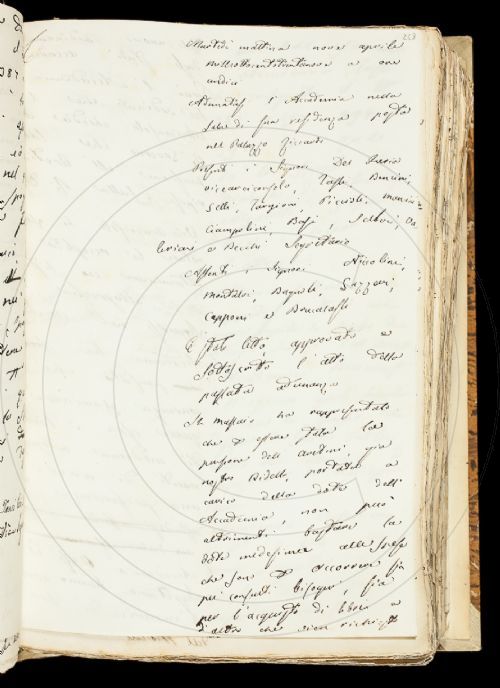 253
Martedì mattina nove aprile
milleottocentotrentanove a ore
undici
Adunatasi l'Accademia nelle
sale di sua residenza posta
nel Palazzo Riccardi
Presenti i Signori Del Furia
vicearciconsolo, Becchini,
Selli, Targioni, Piccioli,
Ciampolini, Basi,
e Becchi Segretario
Assenti i Signori Niccolini,
Montalvi, Bagnoli, Gazzeri,
Capponi e Brucalassi
È stato letto, approvato e
sottoscritto l'atto della
passata adunanza
Il massaio ha rappresentato
che essere stata la
pensione dell già
nostro Bidello, portata a
carico della dote dell'
Accademia, non può
altrimenti bastare la
dote medesima alle spese
che sono occorrere sia
pei consueti bisogni, sia
per l'acquisto di libri e
d'altro che vien richiesto